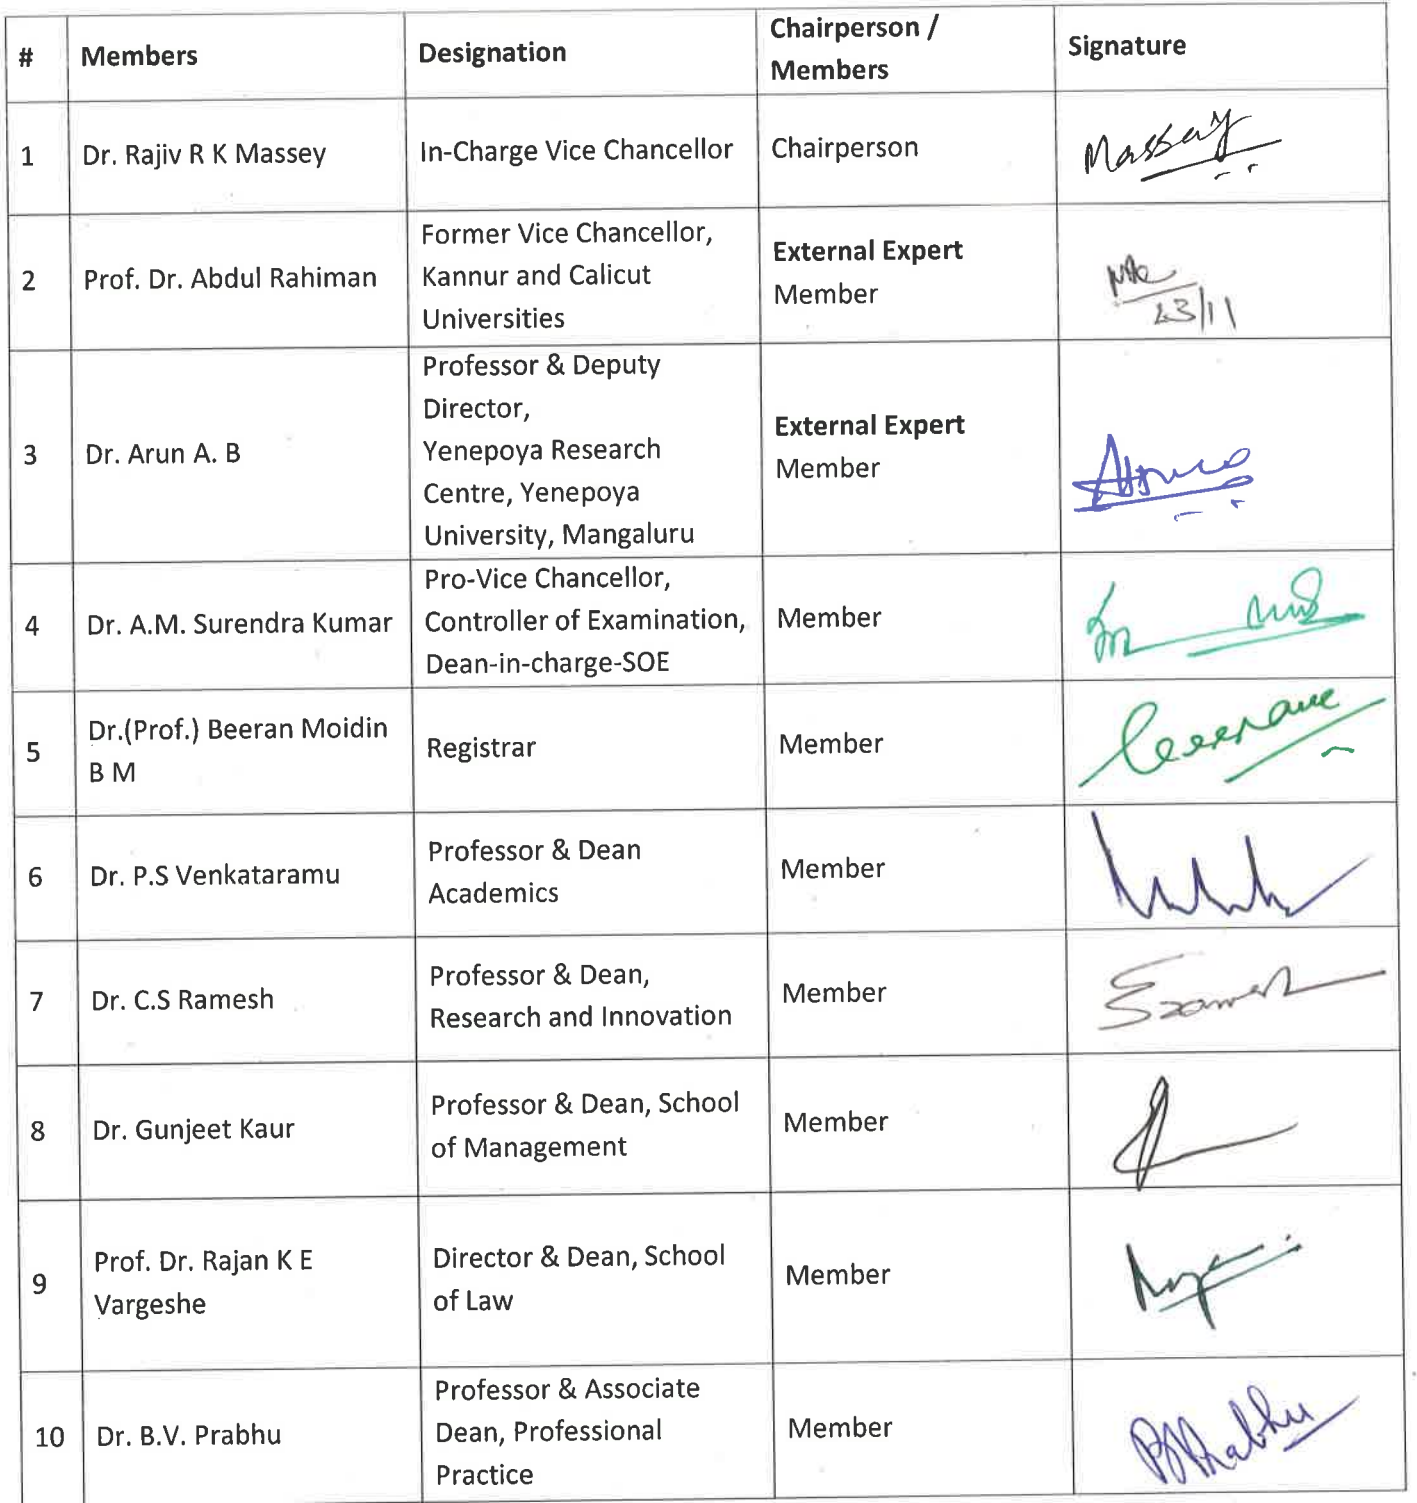 # Members Designation Chairperson / Members Signature
1 Dr. Rajiv R K Massey In-Charge Vice Chancellor Chairperson Massey
2 Prof. Dr. Abdul Rahiman Former Vice Chancellor, Kannur and Calicut Universities External Expert Member 23/11
3 Dr. Arun A. B Professor & Deputy Director, Yenepoya Research Centre, Yenepoya University, Mangaluru External Expert Member
4 Dr. A.M. Surendra Kumar Pro-Vice Chancellor, Controller of Examination, Dean-in-charge-SOE Member
5 Dr.(Prof.) Beeran Moidin B M Registrar Member
6 Dr. P.S Venkataramu Professor & Dean Academics Member
7 Dr. C.S Ramesh Professor & Dean, Research and Innovation Member
8 Dr. Gunjeet Kaur Professor & Dean, School of Management Member
9 Prof. Dr. Rajan K E Vargeshe Director & Dean, School of Law Member
10 Dr. B.V. Prabhu Professor & Associate Dean, Professional Practice Member BVPrabhu